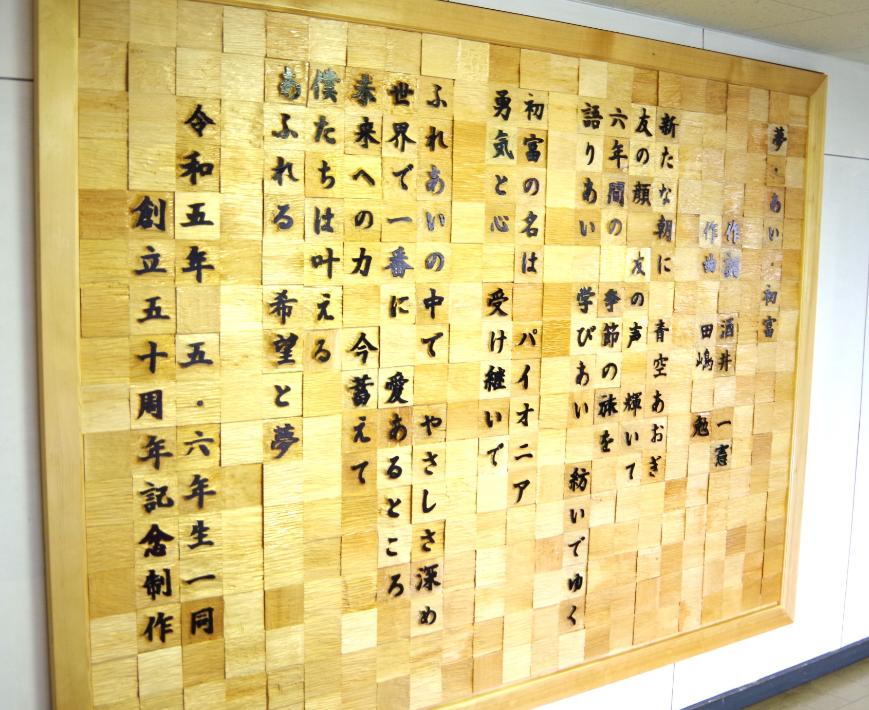 夢・あい・初富
作詞 酒井 一憲
作曲 田嶋 勉
新たな朝に 青空あおぎ
友の顔 友の声 輝いて
六年間の 季節の旅を
語りあい 学びあい 紡いでゆく
初富の名は パイオニア
勇気と心 受け継いで
ふれあいの中で やさしさ深め
世界で一番に 愛あるところ
未来への力 今蓄えて
僕たちは叶える
あふれる 希望と夢
令和五年 五・六年生一同
創立五十周年記念制作